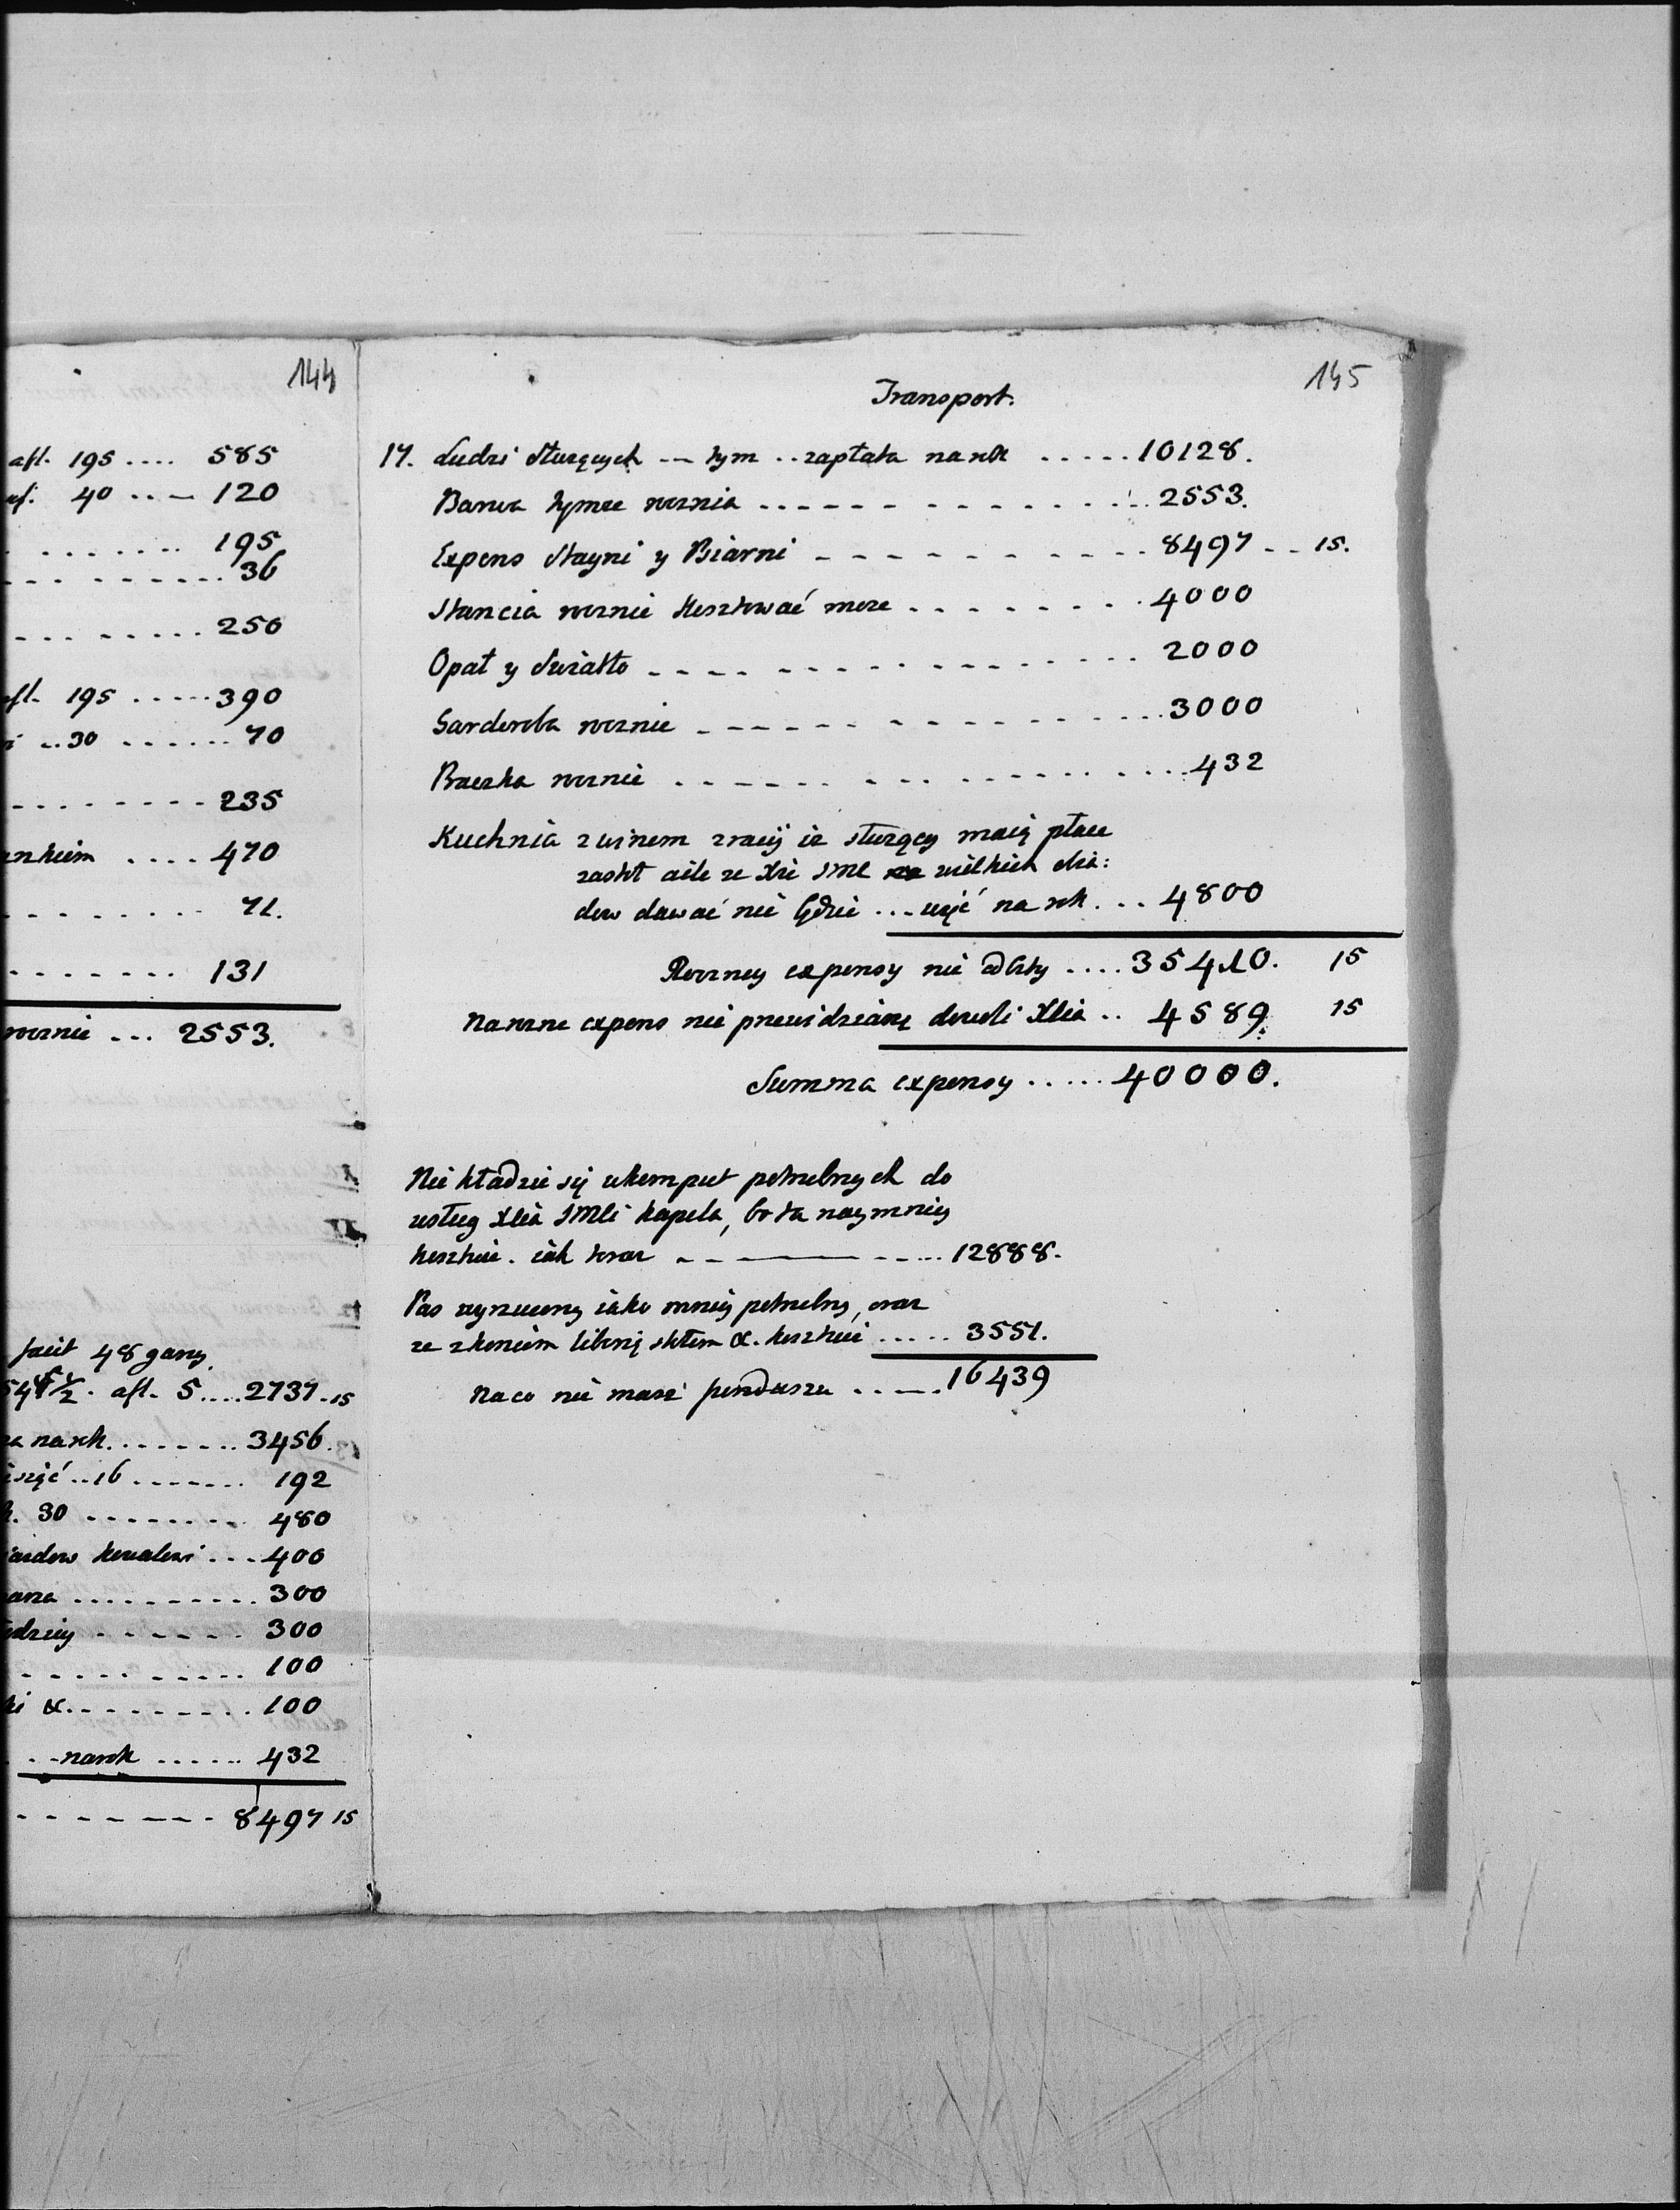 144
afl. 195 .... 585
40 .... 120
........ 195
.......... 36
......... 250
afl. 195 ..... 390
.. 30 ...... 70
......... 235
.... 470
......... 71.
........ 131
rocznie ... 2553.
facit 48 garcy
afl. 5 .... 2737 - 15
na rok ........ 3456.
.. 16 ....... 192
30 ........ 480
kowalowi ... 400
.......... 300
...... 300
........... 100
&. ......... 100
.. na rok ...... 432
........ 8497 15
145
Transport.
17. Ludzi służących --- tym .. zapłata na rok ..... 10128.
Barwa tymże rocznia ............... 2553.
Expens Stayni y Psiarni ........... 8497 .. 15.
Stancia rocznie kosztować może ........ 4000
Opał y Swiatło ............... 2000
Garderoba rocznie ............... 3000
Praczka rocznie ............... 432
Kuchnia z winem z racij iż służący maią płace
zaś a ile że Xże JMC wielkich obia:
dow dawać nie będzie ... na rok ... 4800
Roczney expensy nie odbity .... 35410. 15
Na rożne expens nie przewidziane Xcia .. 4589. 15
Summa expensy ..... 40000.
Nie kładzie się w komput potrzebnych do
usług Xcia JMci kapela, bo ta naymniey
kosztuie. iak teraz ........ 12888.
Pas wyrzucony iako mniey potrzebny, oraz
ze z koniem liberią stołem &. kosztuie ..... 3551.
Na co nie masz funduszu ..... 16439